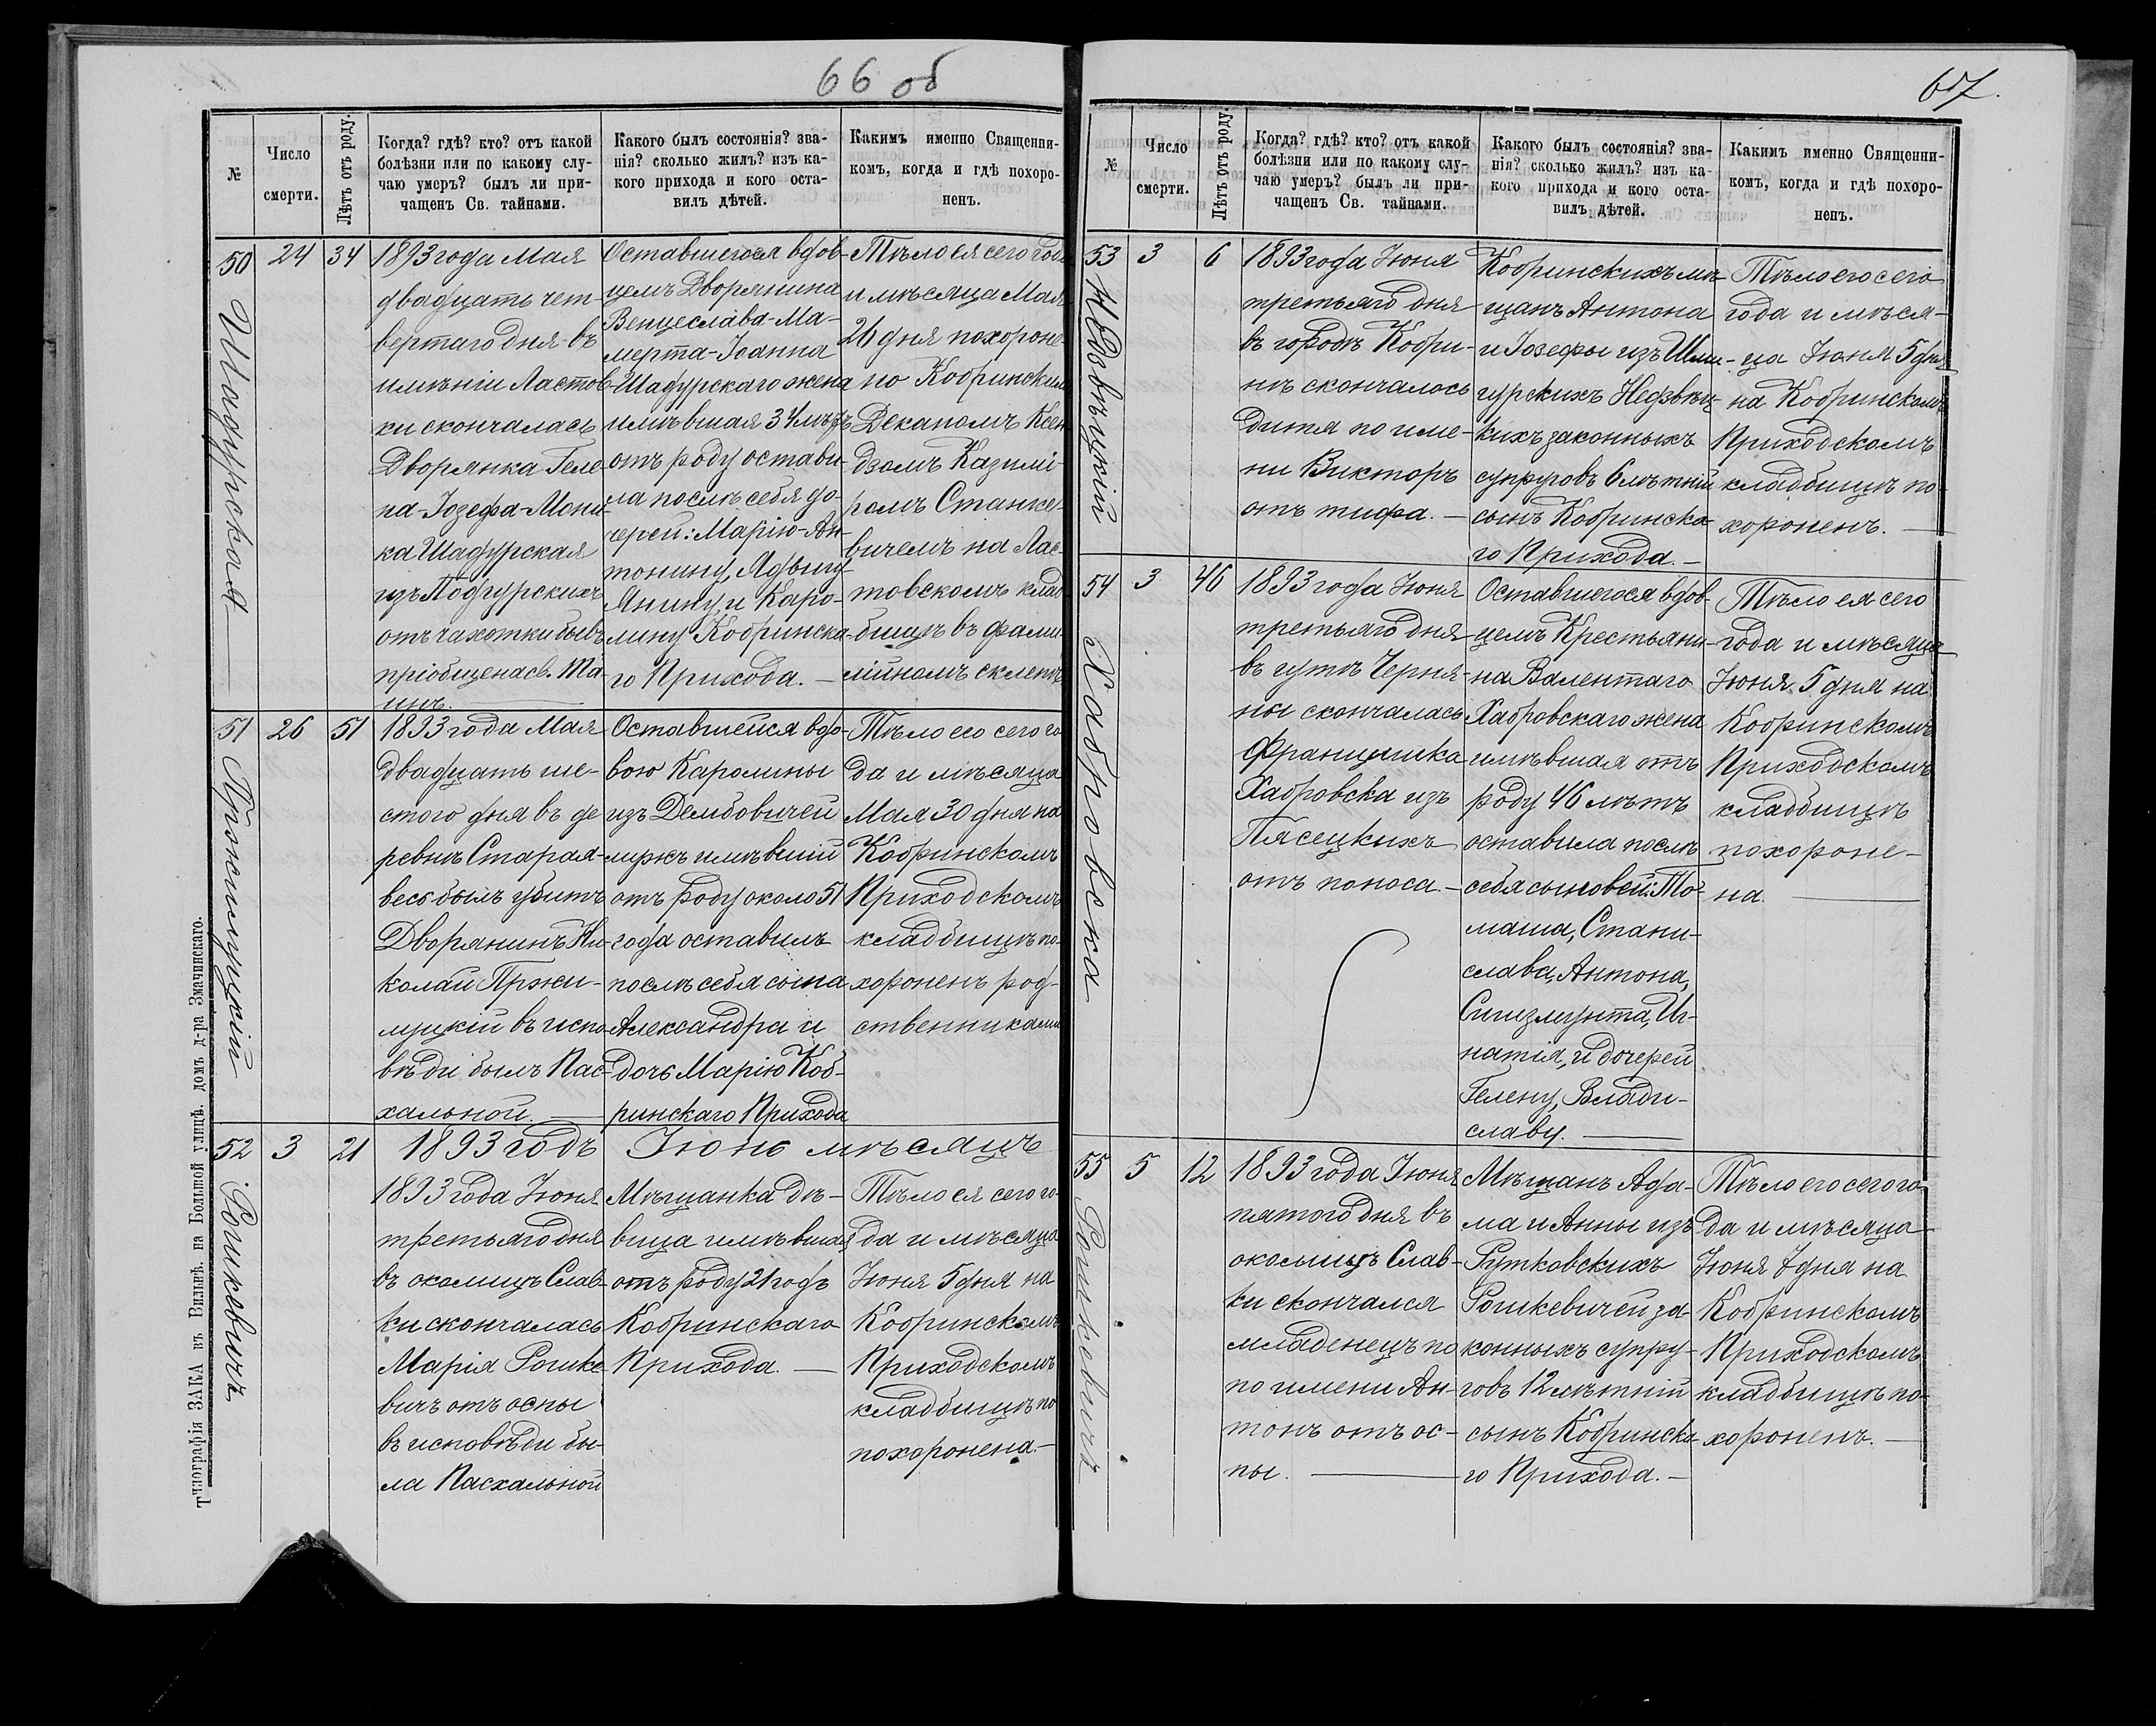 66 об
№
Число
смерти.
Лѣтъ отъ роду.
Когда? гдѣ? кто? отъ какой
болѣзни или по какому слу-
чаю умеръ? былъ ли при-
чащенъ Св. тайнами.
Какого былъ состоянія? зва-
нія? сколько жилъ? изъ ка-
кого прихода и кого оста-
вилъ дѣтей.
Каким​ъ именно Священни-
комъ, когда и гдѣ похоро-
ненъ.
50
Шадурская
24
34
1893 года Мая
двадцать чет-
вертаго дня въ
имѣніи Ластов-
ки скончалась
Дворянка Геле-
на-Іозефа-Мони-
ка Шадурская
изъ Подгурскихъ
отъ чахотки бывъ
пріобщена св. Та-
инъ.
Оставшегося вдов-
цемъ Дворянина
Венцеслава-Ма-
мерта-Іоанна
Шадурскаго жена
имѣвшая 34 лѣтъ
отъ роду остави-
ла послѣ себя до-
черей: Марію-Ан-
тонину, Ядвигу
Янину и Каро-
лину Кобринска-
го Прихода.
Тѣло ея сего года
и мѣсяца Мая
26 дня похороне-
но Кобринскимъ
Деканомъ Ксен-
дзомъ Казимі-
ромъ Станке-
вичемъ на Лас-
товскомъ клад-
бищѣ въ фами-
лійномъ склепѣ
51
Пржилуцкій
26
51
1893 года Мая
двадцать ше-
стого дня въ де
ревнѣ Старая-
весь былъ убитъ
Дворянинъ Ни-
колай Пржи-
луцкій въ испо-
вѣди былъ Пас-
хальной.
Оставшейся вдо-
вою Каролины
изъ Дембовичей
мужъ имѣвшій
отъ роду около 51
года оставилъ
послѣ себя сына
Александра и
дочь Марію Коб-
ринскаго Прихода
Тѣло его сего го
да и мѣсяца
Мая 30 дня на
Кобринскомъ
Приходскомъ
кладбищѣ по-
хороненъ род-
ственниками
52
Рошковичъ
3
21
1893 годъ Іюнь мѣсяцъ
1893 года Іюня
третьяго дня
въ околицѣ Слав-
ки скончалась
Марія Рошке
вичъ отъ оспы
въ исповѣди бы-
ла Пасхальной
Мѣщанка дѣ-
вица имѣвшая
отъ роду 21 годъ
Кобринскаго
Прихода.
Тѣло ея сего го-
да и мѣсяца
Іюня 5 дня на
Кобринскомъ
Приходскомъ
кладбищѣ по
похоронена.
Типографія ЗАКА въ Вильнѣ, на Большой улицѣ, домъ д-ра Змачинскаго.
67.
№
Число
смерти.
Лѣтъ отъ роду.
Когда? гдѣ? кто? отъ какой
болѣзни или по какому слу-
чаю умеръ? былъ ли при-
чащенъ Св. тайнами.
Какого былъ состоянія? зва-
нія? сколько жилъ? изъ ка-
кого прихода и кого оста-
вилъ дѣтей.
Какимъ именно Священни-
комъ, когда и гдѣ похоро-
ненъ.
53
Недзвѣцкій
3
6
1893 года Іюня
третьяго дня
въ городѣ Кобри-
нѣ скончалось
дитя по име-
ни Викторъ
отъ тифа.
Кобринскихъ мѣ-
щанъ Антона
и Іозефы изъ Шли-
гурскихъ Недзвѣц-
кихъ законныхъ
супруговъ 6 лѣтній
сынъ Кобринска-
го Прихода.
Тѣло его сего
года и мѣся-
ца Іюня 5 дня
на Кобринскомъ
Приходскомъ
кладбищѣ по-
хороненъ.
54
Хабровска
3
46
1893 года Іюня
третьяго дня
въ гутѣ Черня-
ны скончалась
Францишка
Хабровска изъ
Пясецкихъ
отъ поноса.
Оставшегося вдов-
цемъ Крестьяни-
на Валентаго
Хабровскаго жена
имѣвшая отъ
роду 46 лѣтъ
оставила послѣ
себя сыновей: То-
маша, Стани-
слава, Антона,
Сигизмунта, Иг-
натія, и дочерей
Гелену, Влади-
славу.
Тѣло ея сего
года и мѣсяца
Іюня 5 дня на
Кобринскомъ
Приходскомъ
кладбищѣ
похороне-
на.
55
Рошковичъ
5
12
1893 года Іюня
пятого дня въ
околицѣ Слав-
ки скончался
младенецъ по
по имени Ан-
тонъ отъ ос-
пы.
Мѣщанъ Ада-
ма и Анны изъ
Рутковскихъ
Рошкевичей за-
конныхъ супру-
говъ 12 лѣтній
сынъ Кобринска-
го Прихода.
Тѣло его сего го-
да и мѣсяца
Іюня 7 дня на
Кобринскомъ
Приходскомъ
кладбищѣ по-
хороненъ.